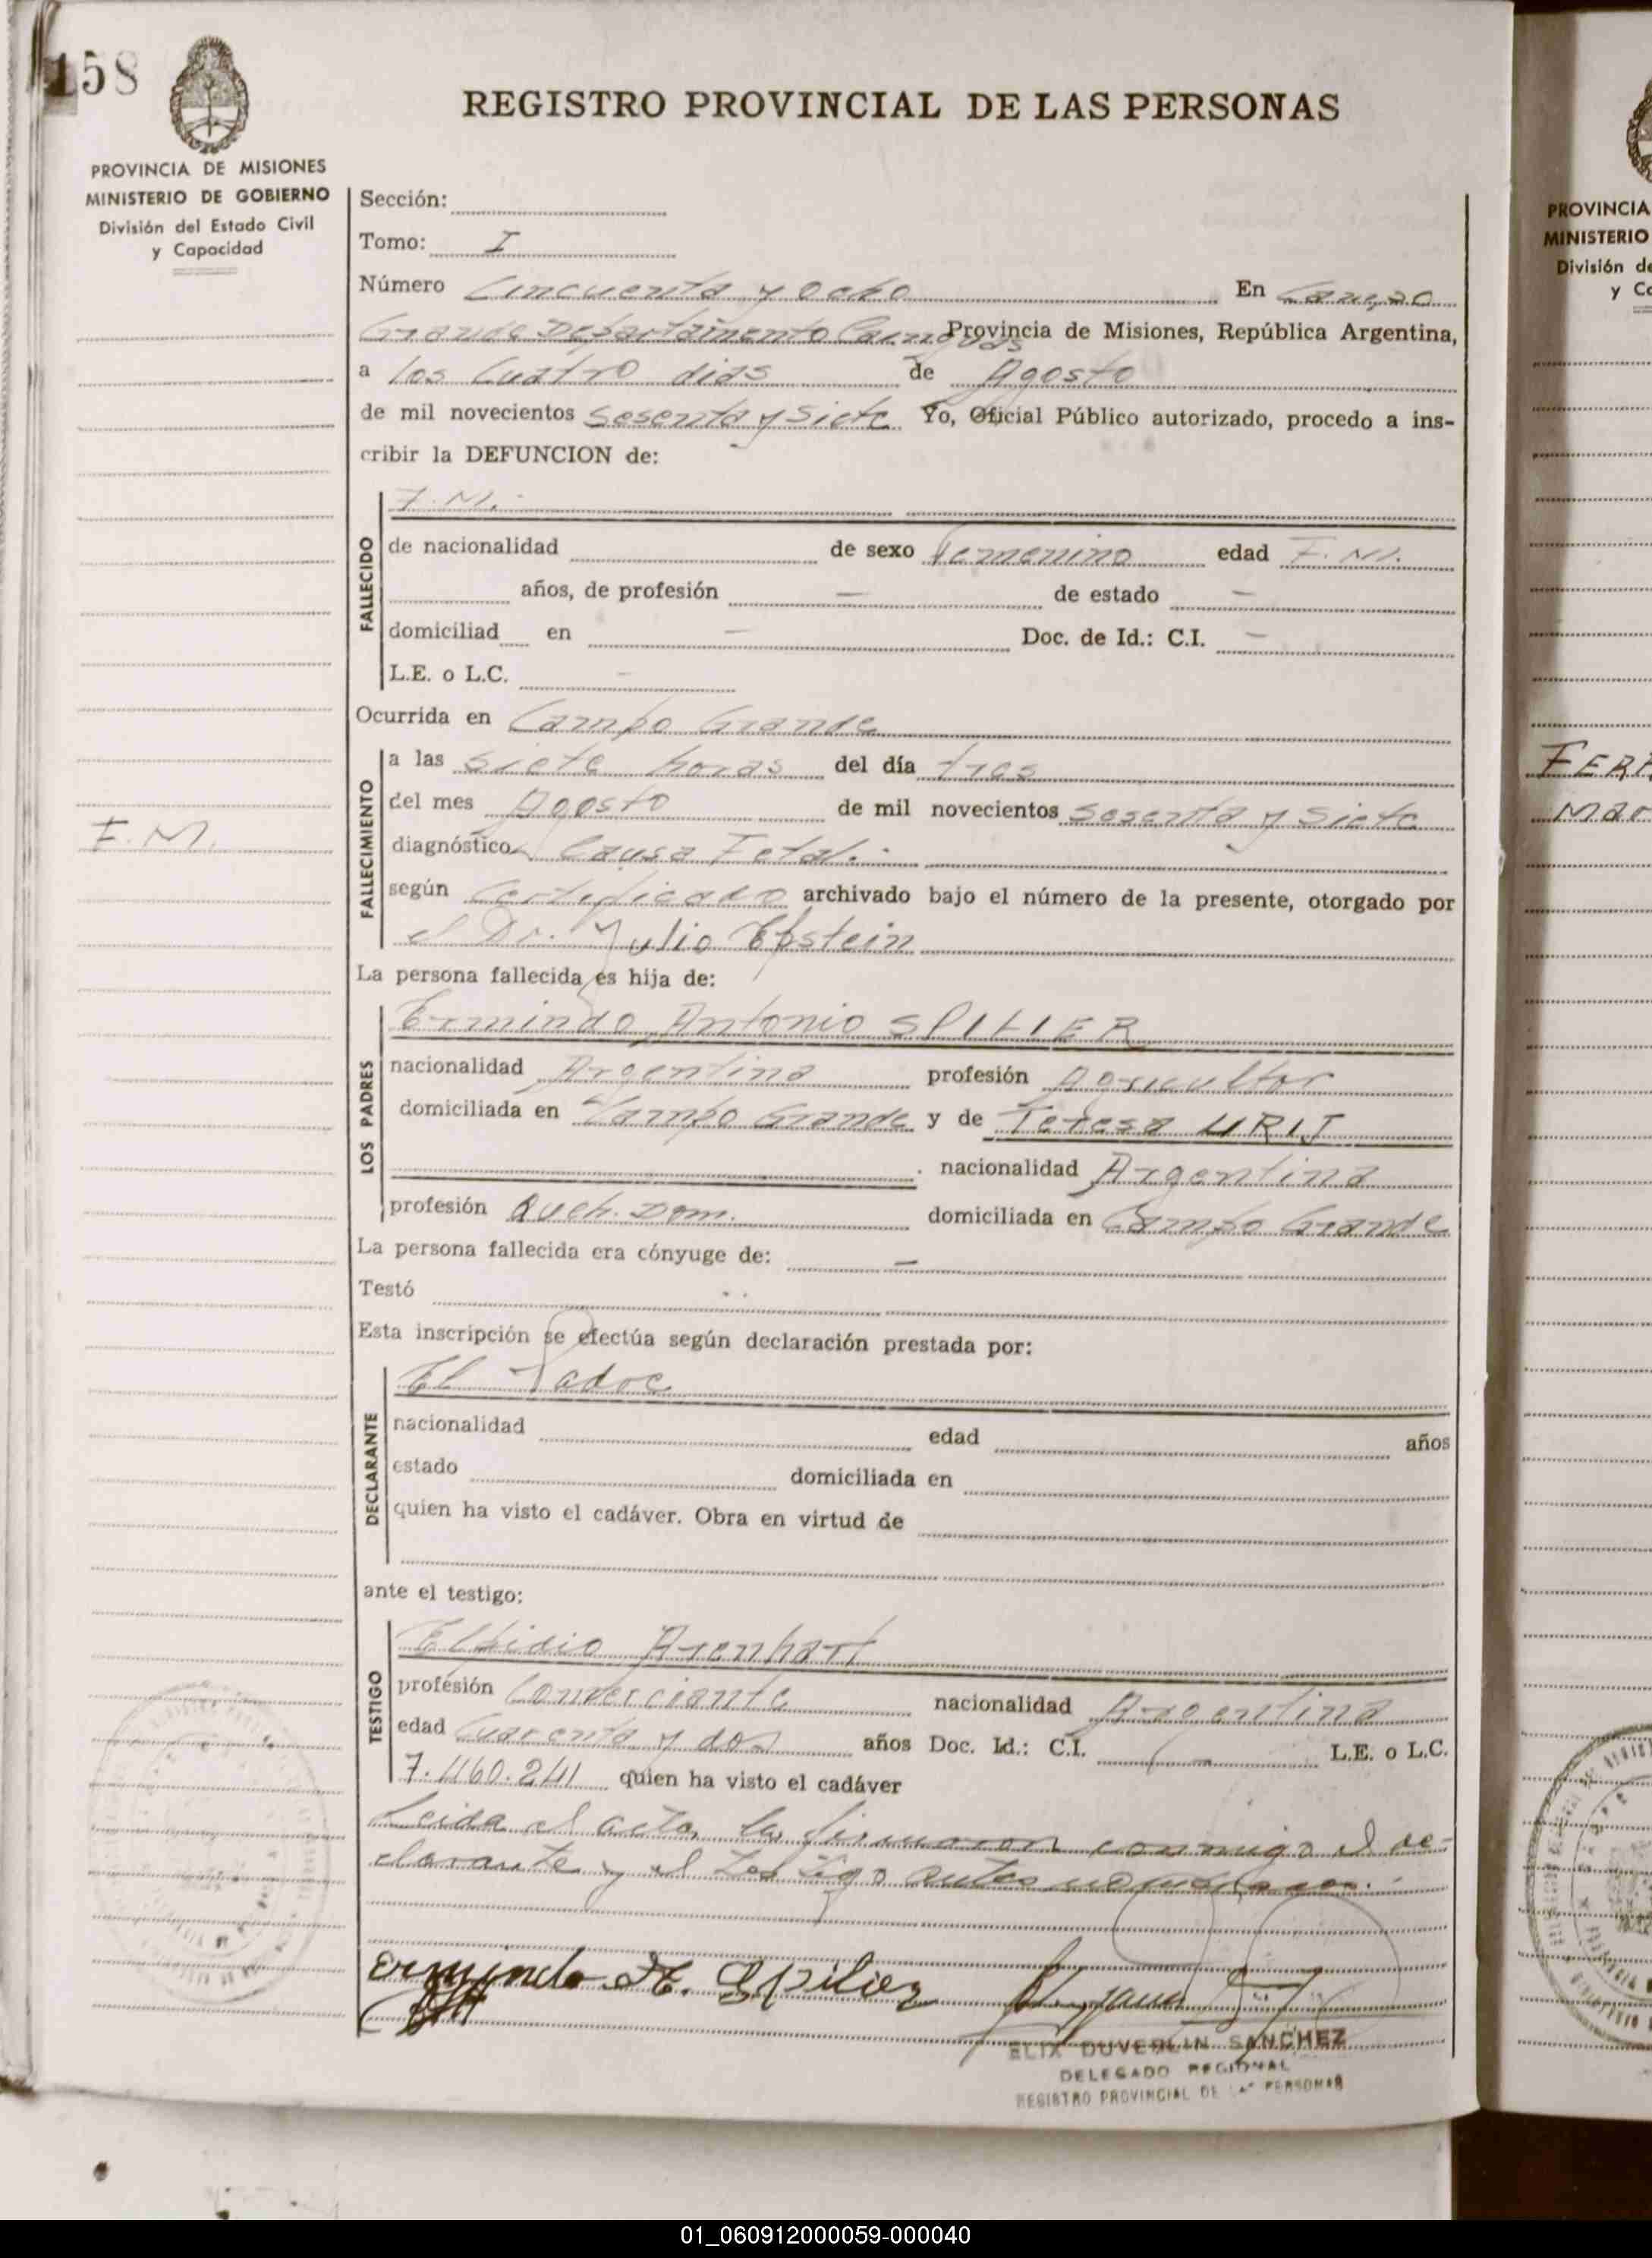 158
REGISTRO PROVINCIAL DE LAS PERSONAS
PROVINCIA DE MISIONES
MINISTERIO DE GOBIERNO
División del Estado Civil
y Capacidad
Sección:
Tomo: I
Número Cincuenta y ocho En Campo
Grande Departamento Cainguas Provincia de Misiones, República Argentina,
a los Cuatro dias de Agosto
de mil novecientos Sesenta y Siete Yo, Oficial Público autorizado, procedo a ins-
cribir la DEFUNCION de:
FALLECIDO
F. M.
de nacionalidad de sexo Femenino edad F. M.
años, de profesión — de estado —
domiciliad en — Doc. de Id.: C.I. —
L.E. o L.C. —
Ocurrida en Campo Grande
FALLECIMIENTO
a las Siete horas del día tres
del mes Agosto de mil novecientos Sesenta y Siete
F. M.
diagnóstico Causa Fetal.
según Certificado archivado bajo el número de la presente, otorgado por
el Dr. Julio Epstein
La persona fallecida es hija de:
LOS PADRES
Ermindo Antonio SPILIER
nacionalidad Argentina profesión Agricultor
domiciliada en Campo Grande y de Teresa URIJ
nacionalidad Argentina
profesión Queh. Dom. domiciliada en Campo Grande
La persona fallecida era cónyuge de: —
Testó
Esta inscripción se efectúa según declaración prestada por:
DECLARANTE
El Padre
nacionalidad edad años
estado domiciliada en
quien ha visto el cadáver. Obra en virtud de
ante el testigo:
TESTIGO
Elpidio Arenhart
profesión Comerciante nacionalidad Argentina
edad Cuarenta y dos años Doc. Id.: C.I. — L.E. o L.C.
7.460.241 quien ha visto el cadáver
Leida el acta, la firmaron conmigo el de-
clarante y el testigo antes nombrados.
Ermindo A. Spilier
ELIX DUVERLIN SANCHEZ
DELEGADO REGIONAL
REGISTRO PROVINCIAL DE LAS PERSONAS
PROVINCIA
MINISTERIO
División de
y Ca
FERR
Mar
01_060912000059-000040